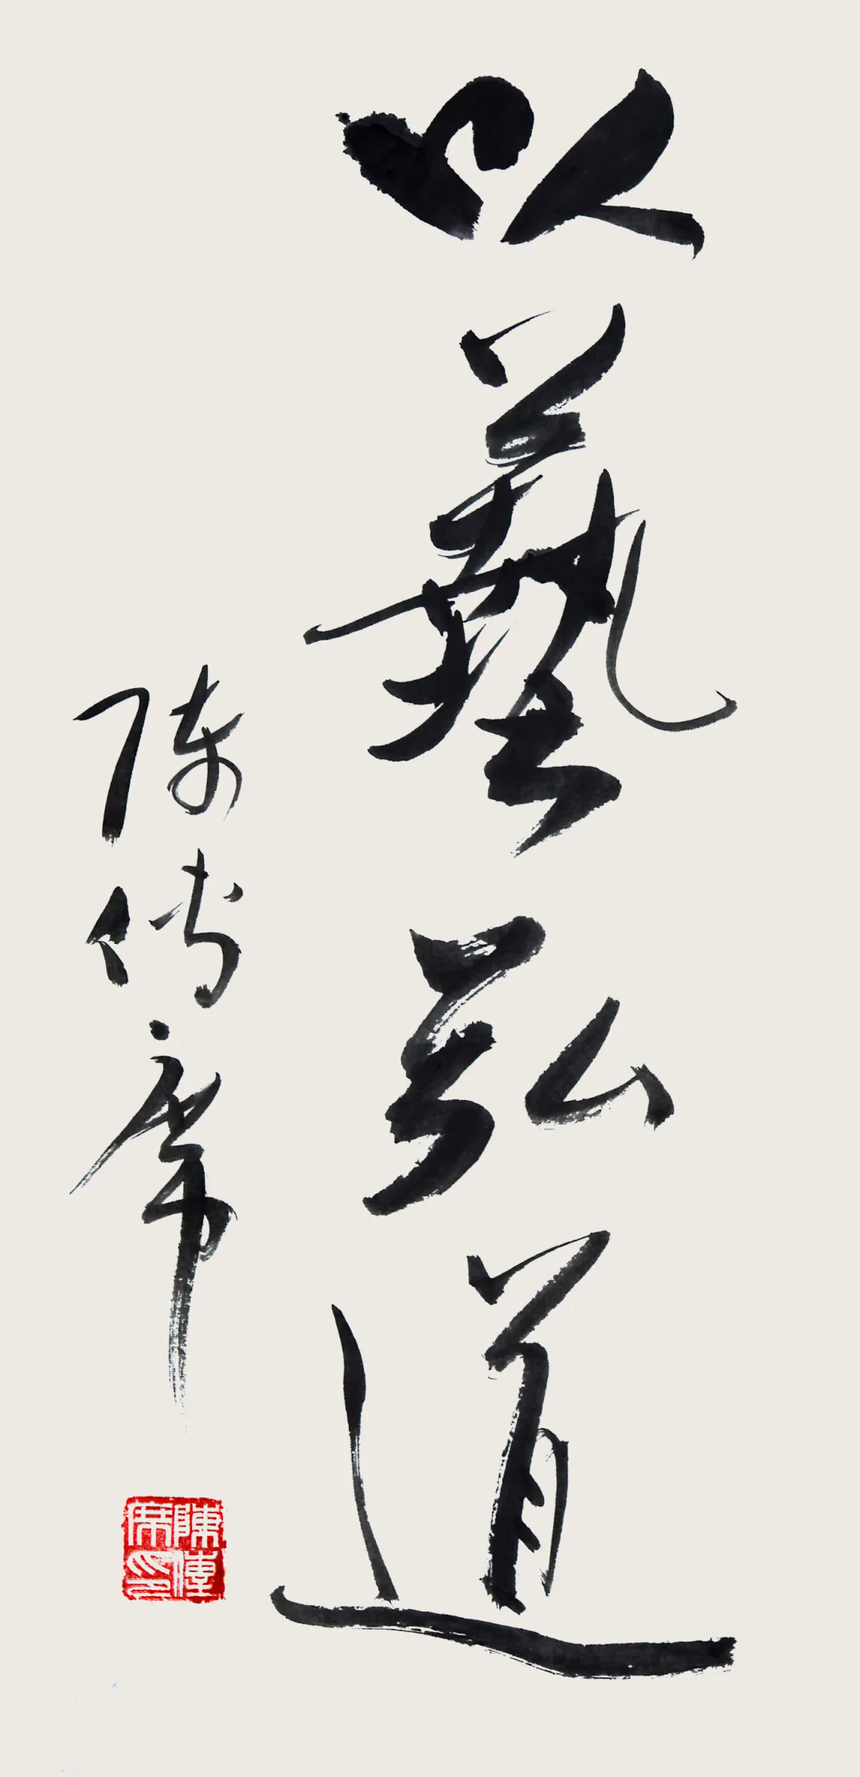 以藝弘道
陈传席
陳傳席印